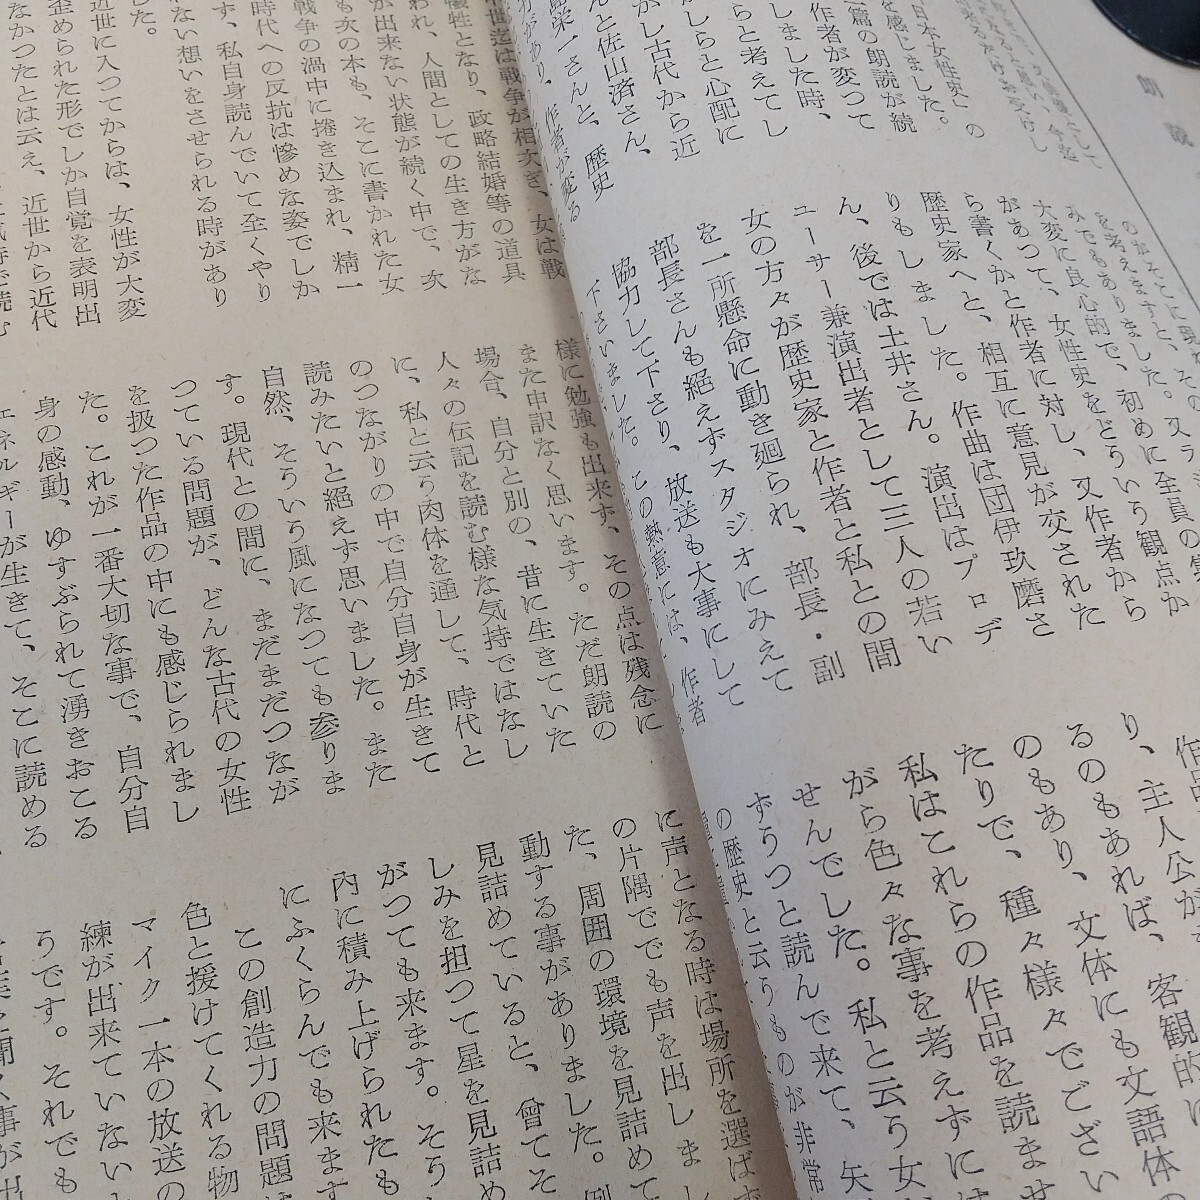 朗読
日本女性史」の
篇の朗読が続
を感じました。
作者が変つて
しました時、
らと考えてし
かしらと心配に
がし古代から近
んと佐山済さん、
栄一さんと、歴史
があり、作者が変る
を考えますと、その又ラ
みでもありました。
大変に良心的で、初めに全員の
があつて、女性史をどういう観点か
ら書くかと作者に対し、又作者から
歴史家へと、相互に意見が交された
りもしました。作曲は団伊玖磨さ
ん、後では土井さん。演出はプロデ
ューサー兼演出者として三人の若い
女の方々が歴史家と作者と私との間
を一所懸命に動き廻られ、部長・副
部長さんも絶えずスタジオにみえて
協力して下さり、放送も大事にして
下さいました。この熱意には、作者
り、主人公が
るのもあれば、客観的に
のもあり、文体にも文語体の
たりで、種々様々でござい
私はこれらの作品を読ませ
がら色々な事を考えずに
せんでした。私と云う女
ずうつと読んで来て、矢
の歴史と云うものが非常
世迄は戦争が相次ぎ、女は戦
犠牲となり、政略結婚等の道具
われ、人間としての生き方がな
が出来ない状態が続く中で、次
も次の本も、そこに書かれた女
戦争の渦中に捲き込まれ、精一
時代への反抗は惨めな姿でしか
ず、私自身読んでいて全くやり
ない想いをさせられる時があり
した。
近世に入つてからは、女性が大変
歪められた形でしか自覚を表明出
なかつたとは云え、近世から近代
様に勉強も出来ず、その点は残念に
また申訳なく思います。ただ朗読の
場合、自分と別の、昔に生きていた
人々の伝記を読む様な気持ではなし
に、私と云う肉体を通して、時代と
のつながりの中で自分自身が生きて
読みたいと絶えず思いました。また
自然、そういう風になつても参りま
す。現代との間に、まだまだつなが
つている問題が、どんな古代の女性
を扱つた作品の中にも感じられまし
た。これが一番大切な事で、自分自
身の感動、ゆすぶられて湧きおこる
エネルギーが生きて、そこに読める
に声となる時は場所を選ばず
の片隅ででも声を出しまし
た、周囲の環境を見詰めて
動する事がありました。例
見詰めていると、曾てそ
しみを担つて星を見詰め
がつても来ます。そう
内に積み上げられたも
にふくらんでも来ます
この創造力の問題は
色と援けてくれる物
マイク一本の放送の
練が出来ていない
うです。それでも